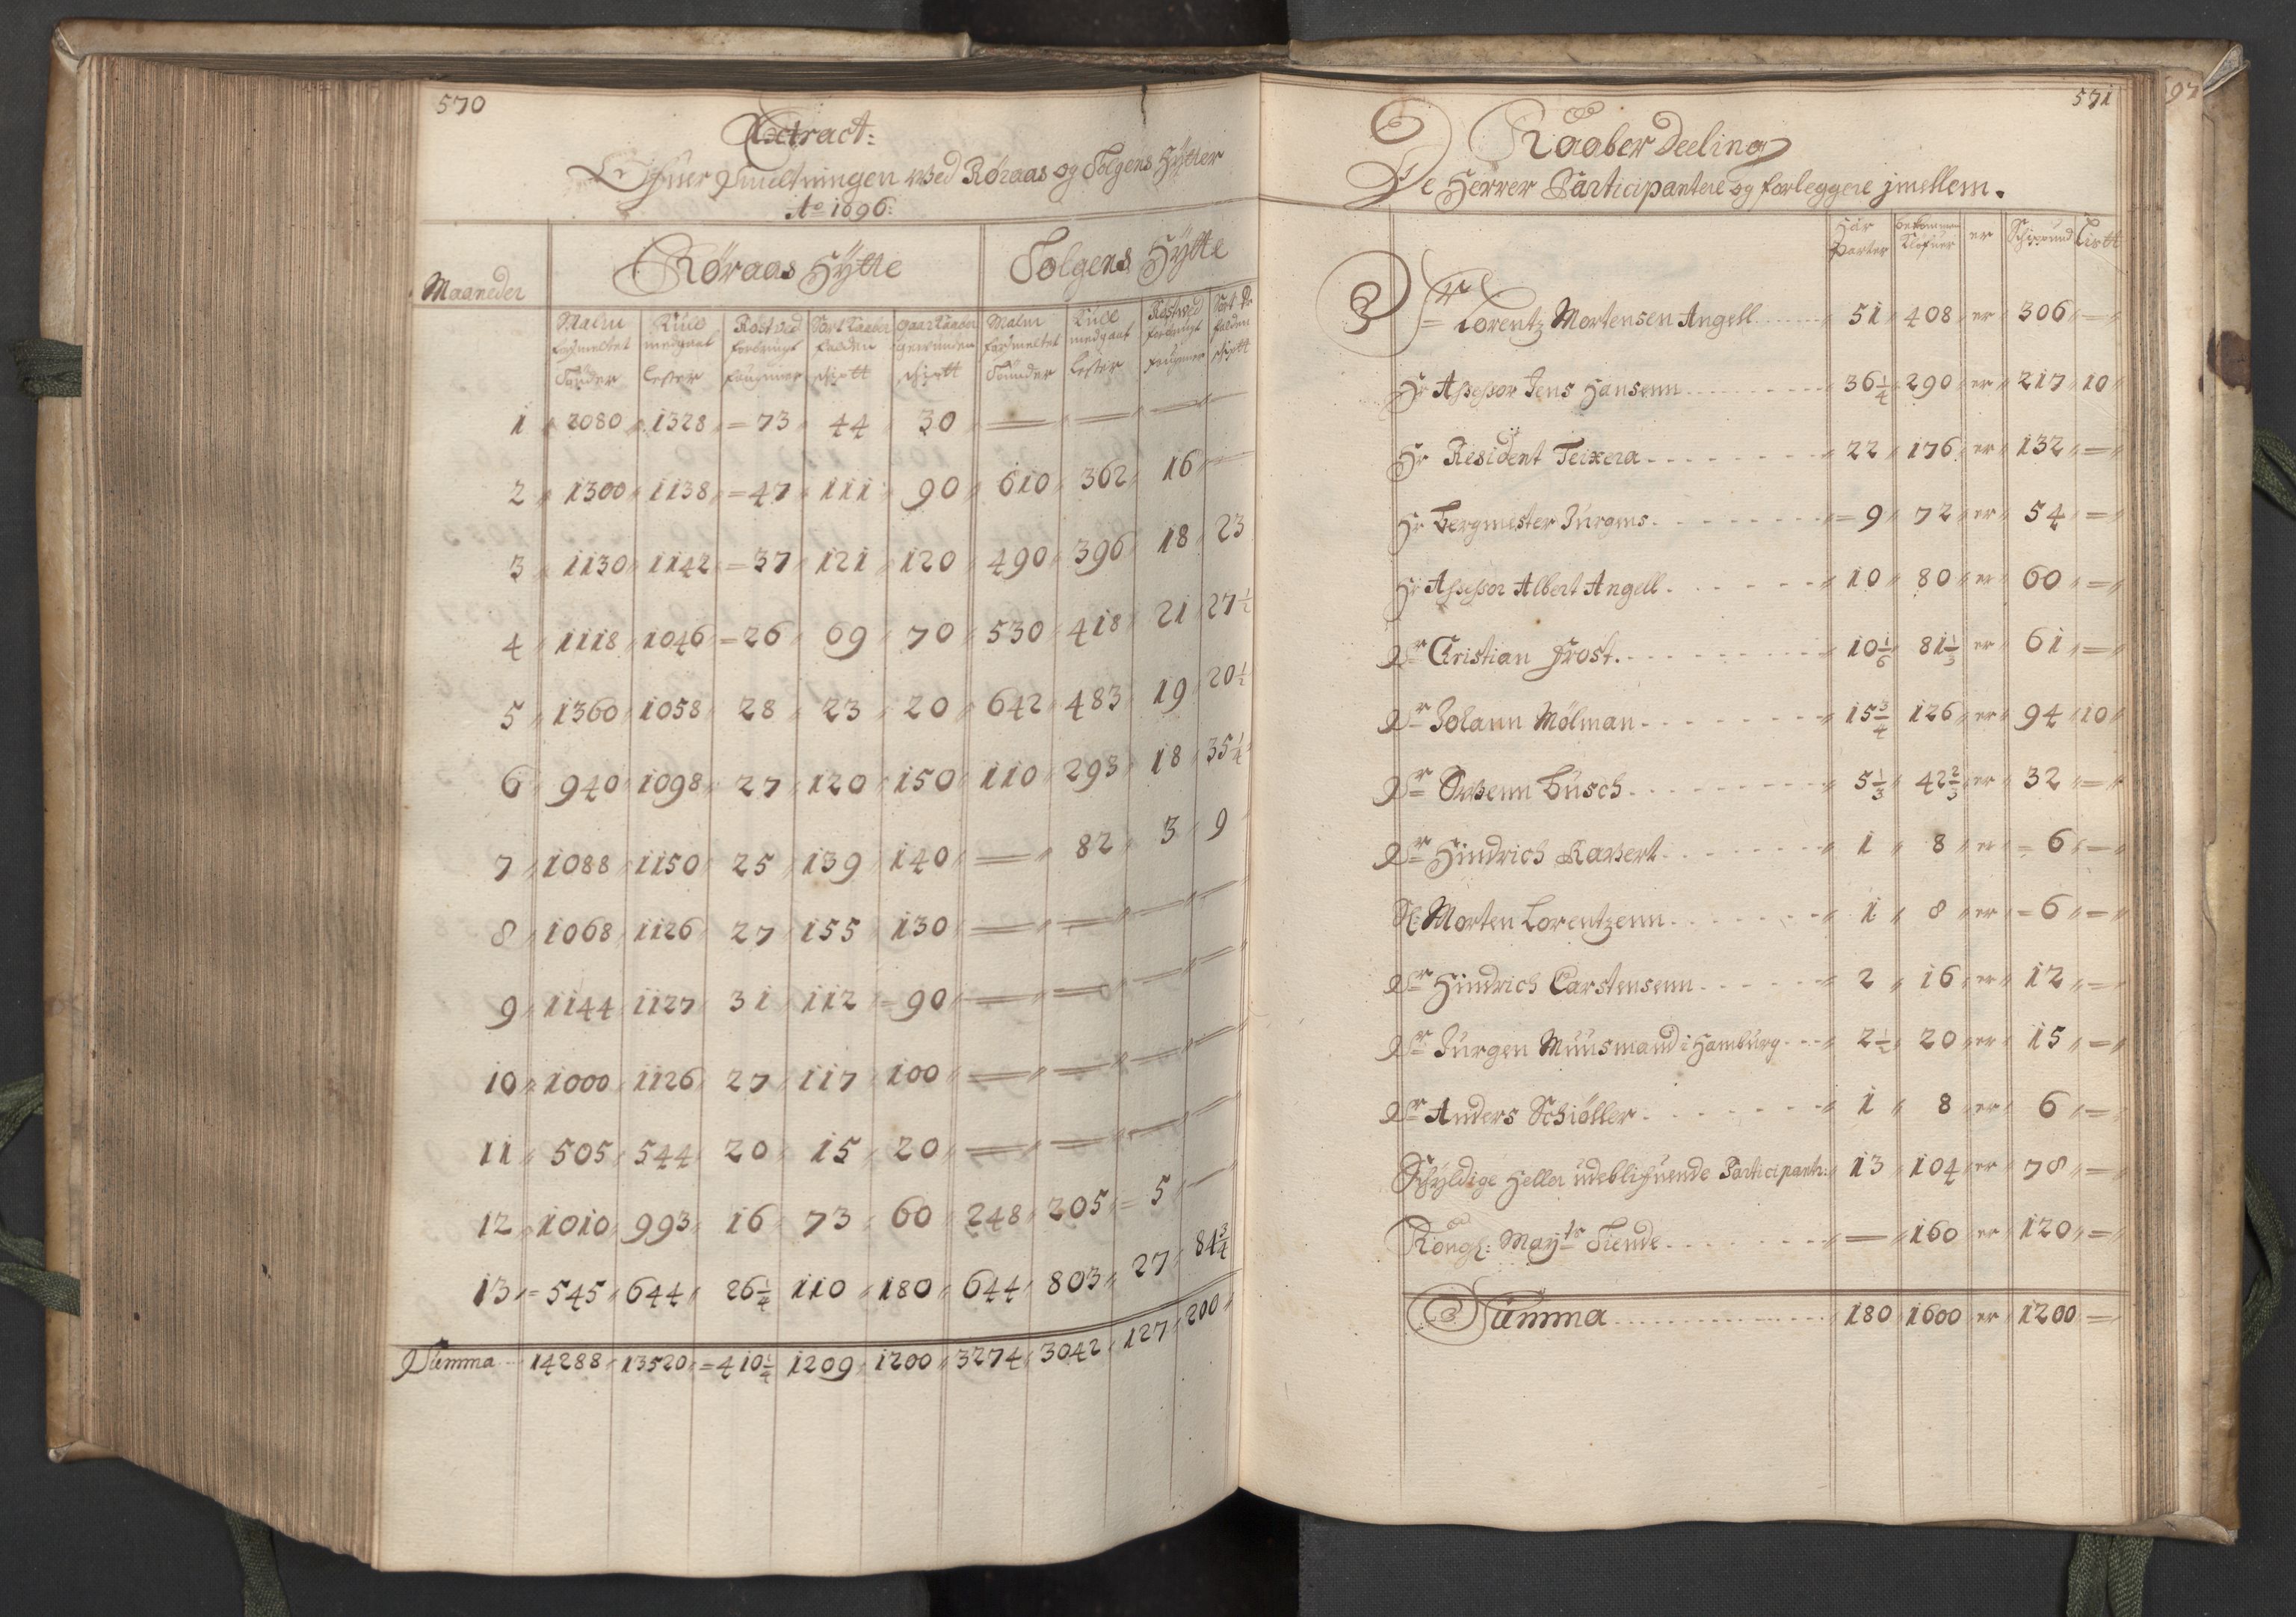 570
Extract:
Ofuer Smeltningen wed Røraas og Tolgens Hytter
Ao 1696:
Maaneder
Røraas Hytte
Tolgens Hytte
Malm forsmeltet Tønder
Kull medgaat Lester
Rostwed forbrugt faufner
Sort Kaaber faaden schiptt
gaar Kaaber gewunden schiptt
Malm forsmeltet Tønder
Kull medgaat Lester
Rostwed forbrugt faufner
Sort K faaden schiptt
1 2080 1328 73 44 30 — — — —
2 1300 1138 47 111 90 610 362 16 —
3 1130 1142 37 121 120 490 396 18 23
4 1118 1046 26 69 70 530 418 21 27 1/2
5 1360 1058 28 23 20 642 483 19 20 1/2
6 940 1098 27 120 150 110 293 18 35 1/4
7 1088 1150 25 139 140 — 82 3 9
8 1068 1126 27 155 130 — — — —
9 1144 1127 31 112 90 — — — —
10 1000 1126 27 117 100 — — — —
11 505 544 20 15 20 — — — —
12 1010 993 16 73 60 248 205 5 —
13 545 644 26 1/4 110 180 644 803 27 84 3/4
Summa 14288 13520 410 1/4 1209 1200 3274 3042 127 200
571
Kaaber Deeling
De Herrer Participantere og forleggere jmellem.
Har Parter
bekommer Klofuer
er
Schippund
Listt
Hr Lorentz Mortensen Angell 51 408 er 306 —
Hr Assessor Jens Hansenn 36 1/4 290 er 217 10
Hr Resident Teixera 22 176 er 132 —
Hr Bergmester Jürgens 9 72 er 54 —
Hr Assessor Albert Angell 10 80 er 60 —
Sr Christian Frost 10 1/6 81 1/3 er 61 —
Sr Johann Mölman 15 3/4 126 er 94 10
Sr Swenn Busch 5 1/3 42 2/3 er 32 —
Sr Hindrich Kawert 1 8 er 6 —
Sl: Morten Lorentzenn 1 8 er 6 —
Sr Hindrich Carstensenn 2 16 er 12 —
Sr Jürgen Muusmand i Hamburg 2 1/2 20 er 15 —
Sr Anders Schiöller 1 8 er 6 —
Schyldige Heller udeblifuende Participantr: 13 104 er 78 —
Kongl: Mayts Tiende — 160 er 120 —
Summa 180 1600 er 1200 —